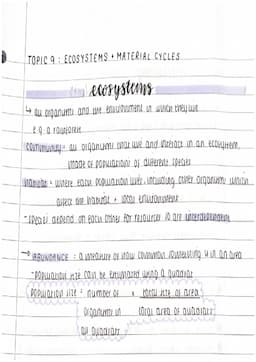 TOPIC 9: ECOSYSTEMS + MATERIAL CYCLES
ecosystems
↳ all organisms and the environment in which they live
e.g. a rainforest
community - all organisms that live and interact in an ecosystem,
made of populations of different species
habitat - where each population lives, including other organisms which
affect the habitat + local environment
- species depend on each other for resources so are interdependent
→ ABUNDANCE : a measure of how common something is in an area
- population size can be estimated using a quadrat
population size = number of x total size of area
organisms in total area of quadrats
all quadrats